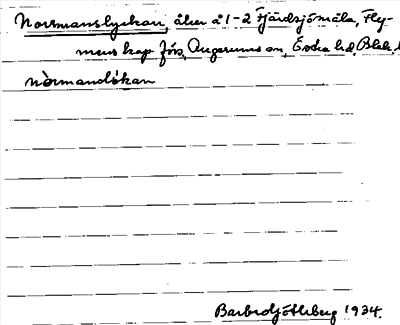 Norrmanslyckan, åker å 1-2 Fjärdsjömåla, Fly-
mens kap förs, Augerums sn, Östra hd, Blek.
nòrmands̀kan
Barbro Götlberg 1934.